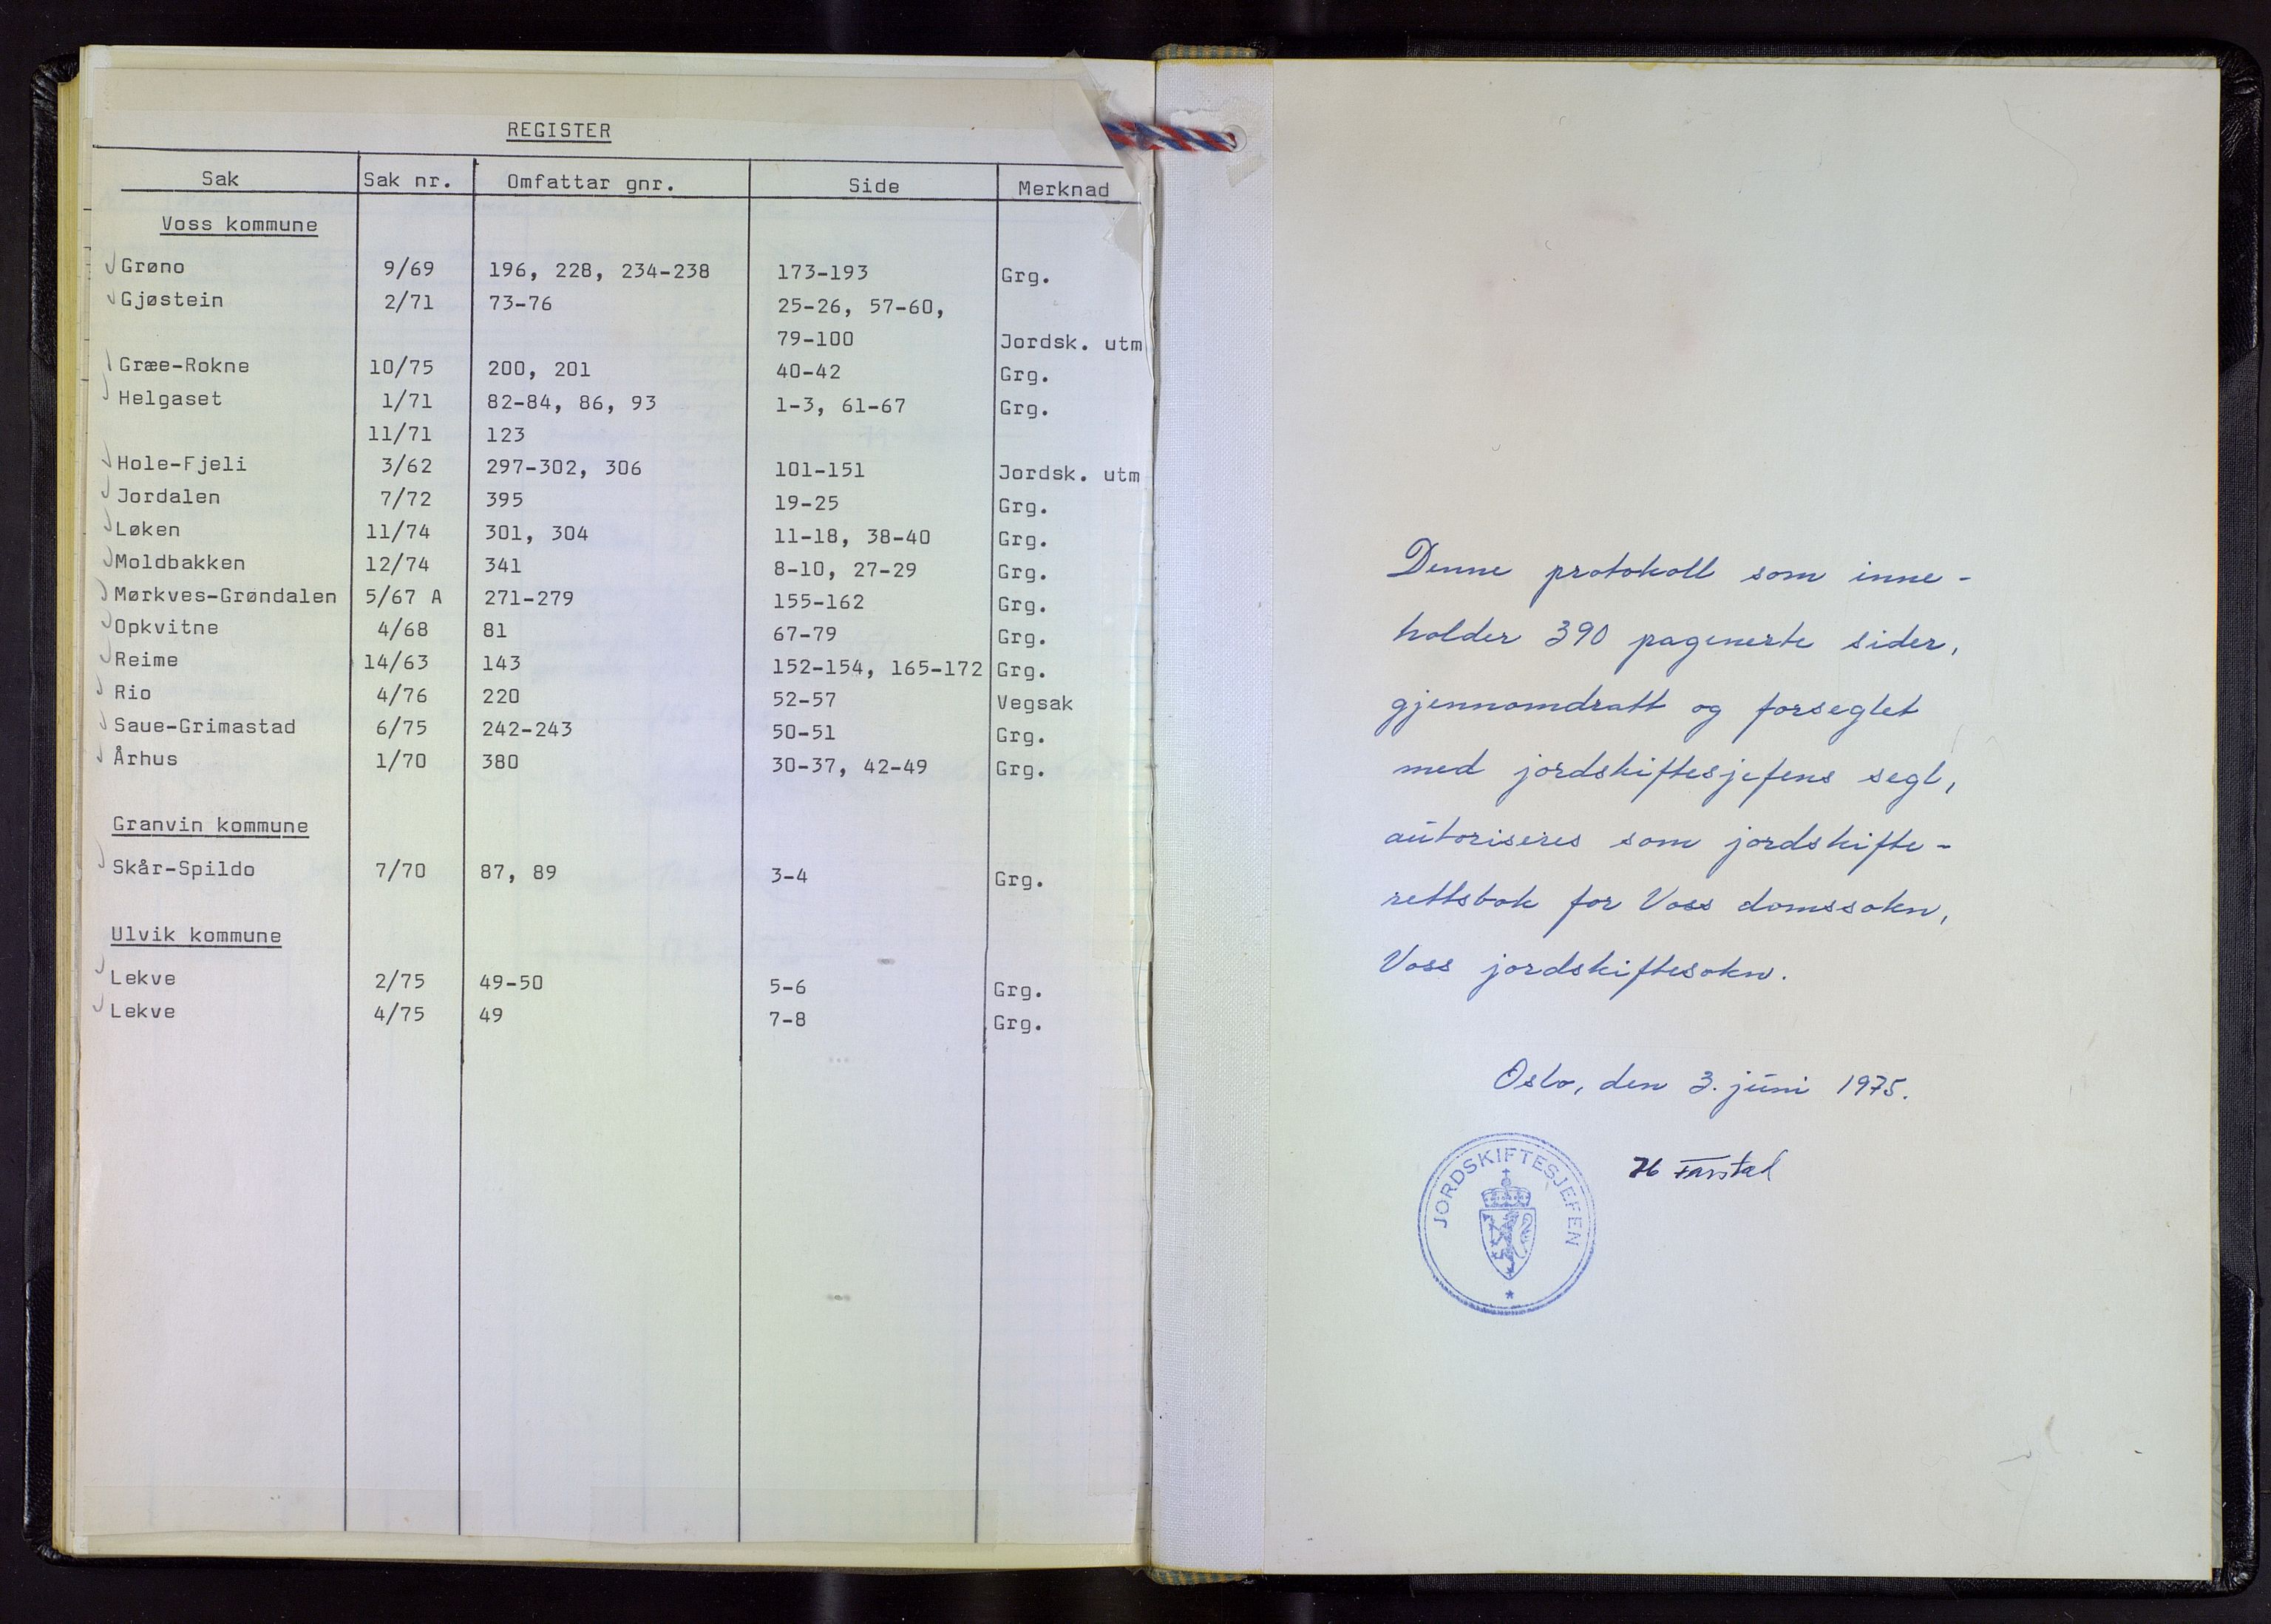 REGISTER
Sak Sak nr. Omfattar gnr. Side Merknad
Voss kommune
Grøno 9/69 196, 228, 234-238 173-193 Grg.
Gjøstein 2/71 73-76 25-26, 57-60,
79-100 Jordsk. utm
Græe-Rokne 10/75 200, 201 40-42 Grg.
Helgaset 1/71 82-84, 86, 93 1-3, 61-67 Grg.
11/71 123
Hole-Fjeli 3/62 297-302, 306 101-151 Jordsk. utm
Jordalen 7/72 395 19-25 Grg.
Løken 11/74 301, 304 11-18, 38-40 Grg.
Moldbakken 12/74 341 8-10, 27-29 Grg.
Mørkves-Grøndalen 5/67 A 271-279 155-162 Grg.
Opkvitne 4/68 81 67-79 Grg.
Reime 14/63 143 152-154, 165-172 Grg.
Rio 4/76 220 52-57 Vegsak
Saue-Grimastad 6/75 242-243 50-51 Grg.
Århus 1/70 380 30-37, 42-49 Grg.
Granvin kommune
Skår-Spildo 7/70 87, 89 3-4 Grg.
Ulvik kommune
Lekve 2/75 49-50 5-6 Grg.
Lekve 4/75 49 7-8 Grg.
Denne protokoll som inne-
holder 390 paginerte sider,
gjennomdratt og forseglet
med jordskiftesjefens segl,
autoriseres som jordskifte-
rettsbok for Voss domssokn,
Voss jordskiftesokn.
Oslo, den 3. juni 1975.
H Farstad
JORDSKIFTESJEFEN
*